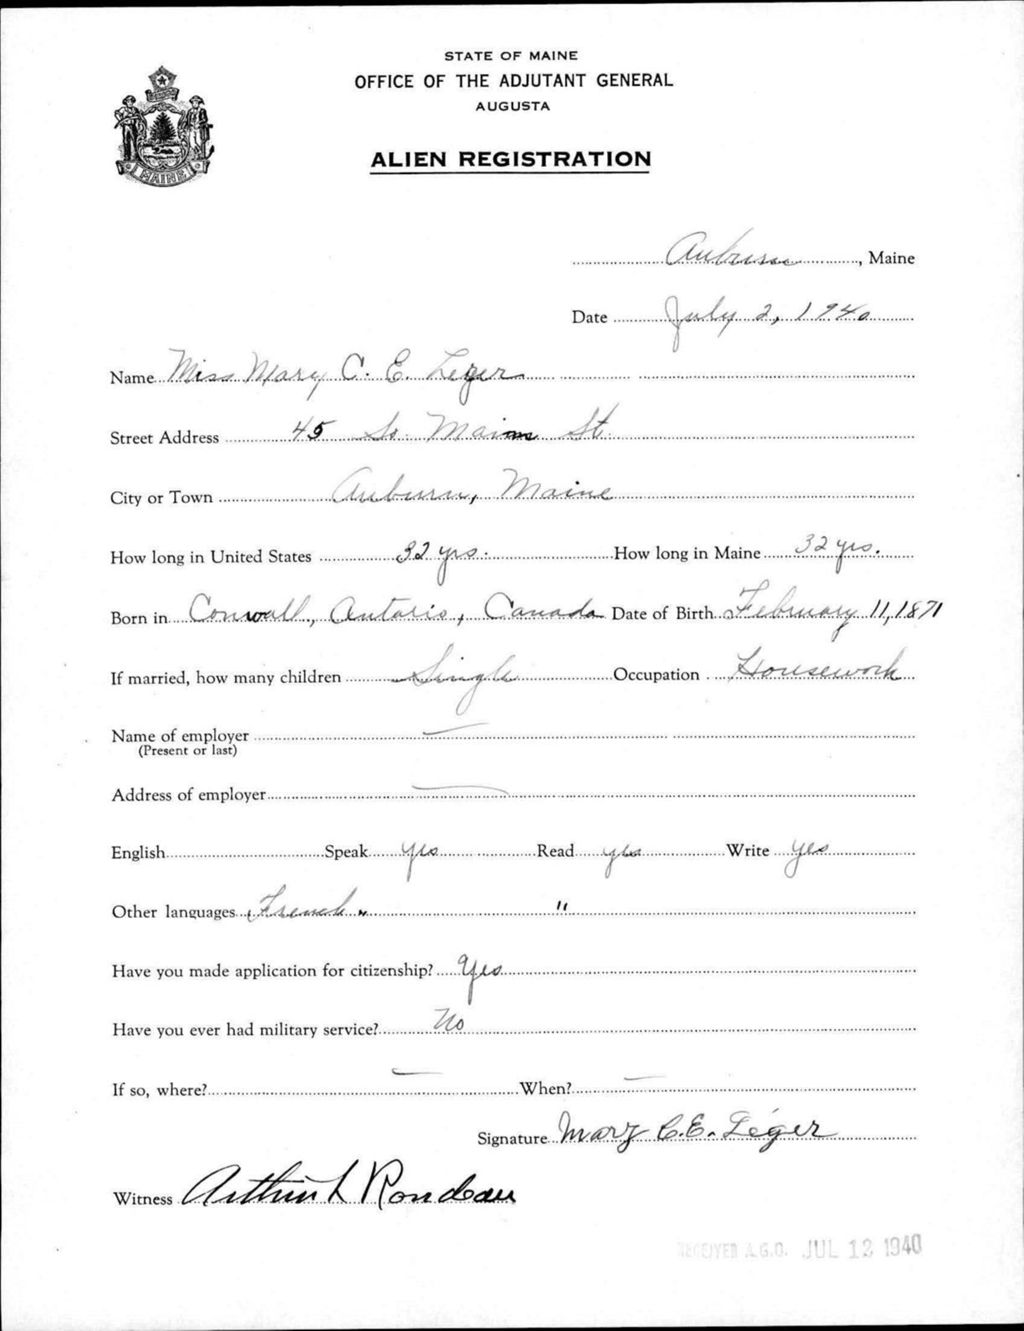 STATE OF MAINE
OFFICE OF THE ADJUTANT GENERAL
AUGUSTA
ALIEN REGISTRATION
MAINE
Auburn, Maine
Date July 2, 1940
Name Miss Mary C. E. Leger
Street Address 45 So. Main St.
City or Town Auburn, Maine
How long in United States 32 yrs. How long in Maine 32 yrs.
Born in Conwall, Ontario, Canada Date of Birth February 11, 1871
If married, how many children Single Occupation Housework
Name of employer —
(Present or last)
Address of employer —
English Speak yes Read yes Write yes
Other languages French " "
Have you made application for citizenship? Yes
Have you ever had military service? No
If so, where? — When? —
Signature Mary C. E. Léger
Witness Arthur L Rondeau
RECEIVED A.G.O. JUL 12 1940